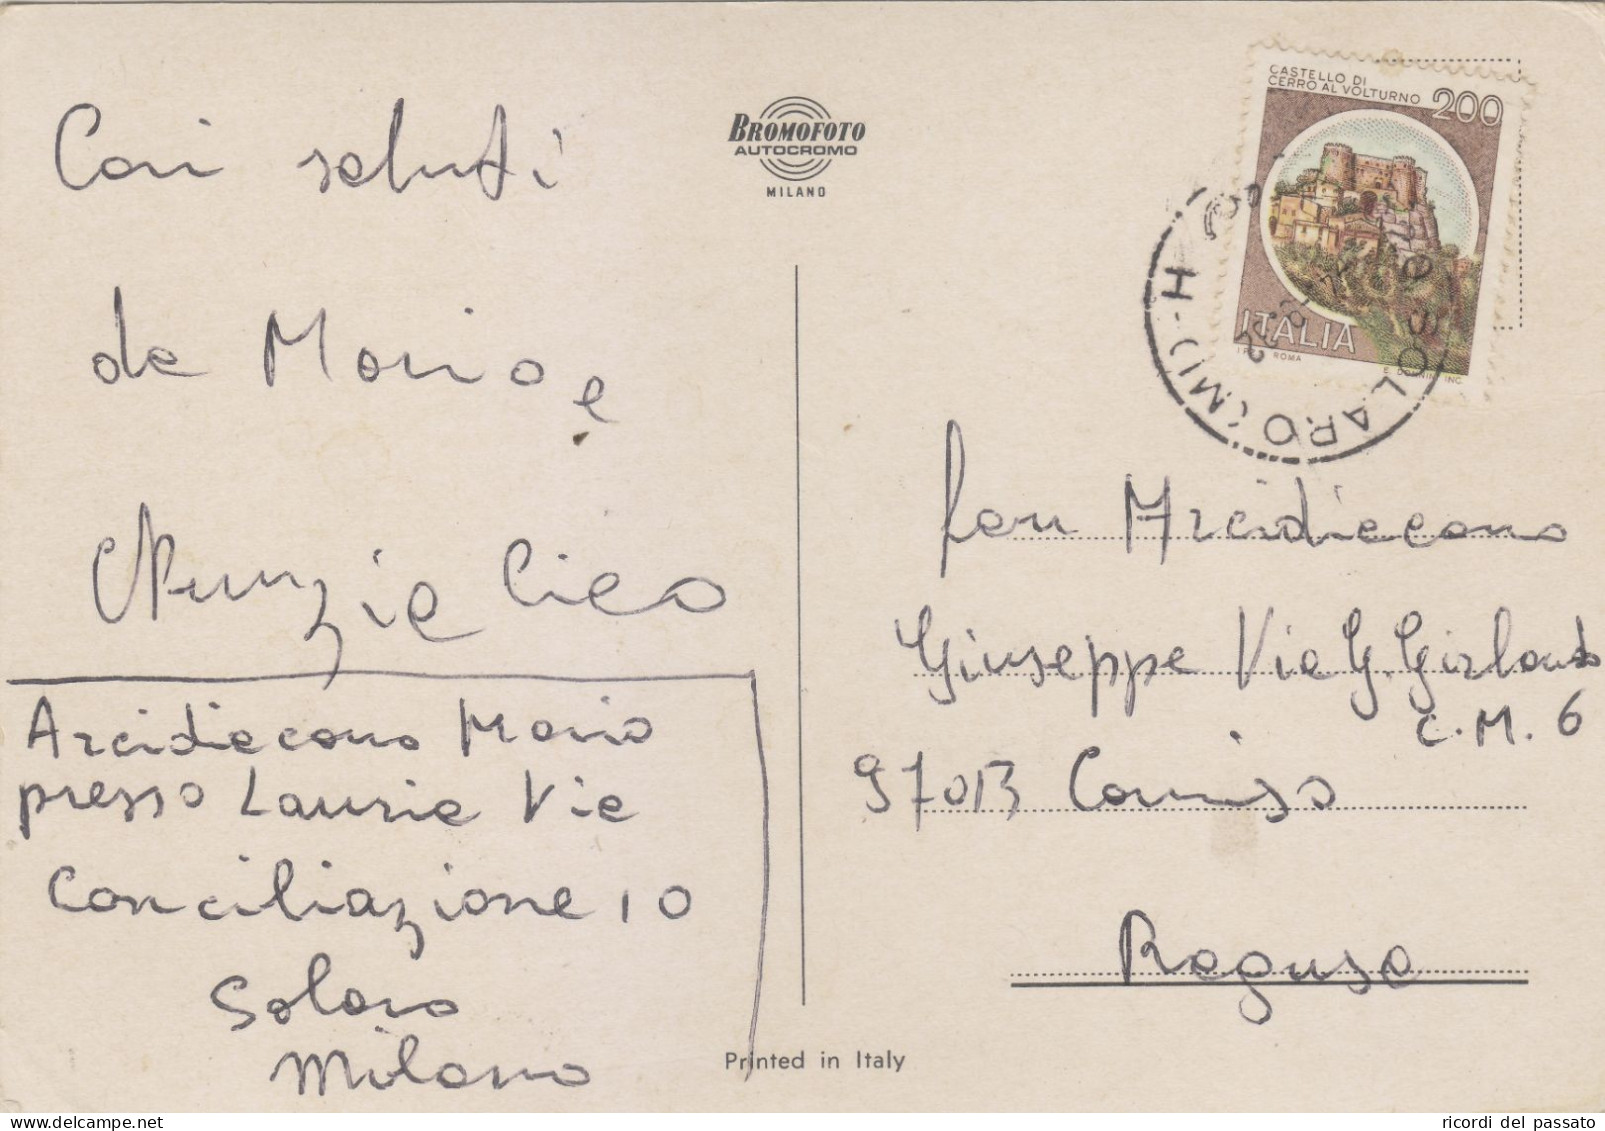 Cari saluti
da Mario e
Nunzia Cico
Arcidiacono Mario
presso Lauria Via
Conciliazione 10
Solaro
Milano
BROMOFOTO
AUTOCROMO
MILANO
Printed in Italy
CASTELLO DI
CERRO AL VOLTURNO 200
ITALIA
ROMA
INC.
SOLARO (MI) - H
Fam Arcidiacono
Giuseppe Via G. Girlando
C.M. 6
97013 Comiso
Ragusa
ricordi del passato